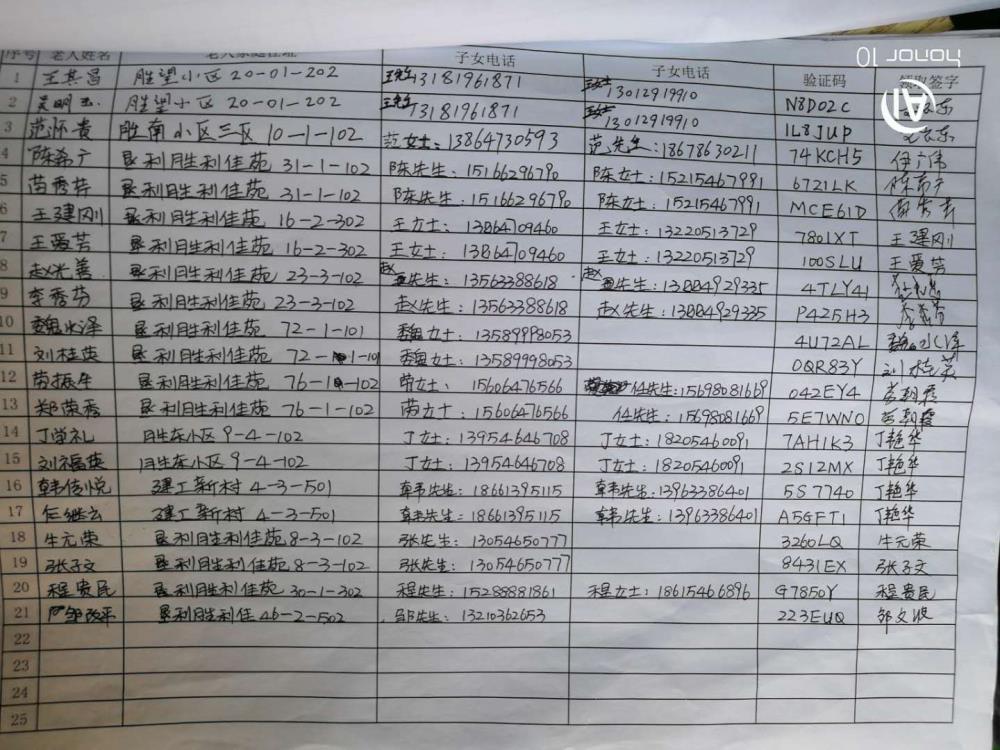 HONOR 10
AI
序号 老人姓名 老人家庭住址 子女电话 子女电话 验证码 领取签字
1 王其昌 胜望小区20-01-202 13181961871 13012919910 N8D02C
2 胜望小区20-01-202 13181961871 13012919910 1L8JUP
3 范怀贵 胜南小区三区10-1-102 范女士:13864730593 范先生:18678630211 74KCH5
4 陈希广 垦利胜利佳苑31-1-102 陈先生:15166296790 陈女士:15215467991 6721LK
5 苗秀芬 垦利胜利佳苑31-1-102 陈先生:15166296790 陈女士:15215467991 MCE61D
6 王建刚 垦利胜利佳苑16-2-302 王女士:13864709460 王女士:13220513729 7801XT 王建刚
7 王爱芳 垦利胜利佳苑16-2-302 王女士:13864709460 王女士:13220513729 100SLU 王爱芳
8 赵光善 垦利胜利佳苑23-3-102 赵先生:13563388618 赵先生:13884929335 4TLY41
9 李秀芬 垦利胜利佳苑23-3-102 赵先生:13563388618 赵先生:13884929335 P425H3
10 魏水泽 垦利胜利佳苑72-1-101 魏女士:13589998053 4U72AL 魏水泽
11 刘桂英 垦利胜利佳苑72-1-101 魏女士:13589998053 0QR83Y 刘桂英
12 垦利胜利佳苑76-1-102 女士:15606476566 任先生:15698081669 042EY4
13 郑荣秀 垦利胜利佳苑76-1-102 女士:15606476566 任先生:15698081669 5E7WNO
14 丁学礼 胜东小区9-4-102 丁女士:13954646708 丁女士:18205460091 7AH1K3 丁艳华
15 刘福英 胜东小区9-4-102 丁女士:13954646708 丁女士:18205460091 2S12MX 丁艳华
16 韩传悦 建工新村4-3-501 韩先生:18661395115 韩先生:13963386401 5S7740 丁艳华
17 任继云 建工新村4-3-501 韩先生:18661395115 韩先生:13963386401 A5GFT1 丁艳华
18 牛元荣 垦利胜利佳苑8-3-102 张先生:13054650777 3260LQ 牛元荣
19 张子文 垦利胜利佳苑8-3-102 张先生:13054650777 8431EX 张子文
20 程贵民 垦利胜利佳苑30-1-302 程先生:15288881861 程女士:18615466896 G7850Y 程贵民
21 邹改平 垦利胜利佳46-2-502 邹先生:13210362653 223EUQ 邹文波
22
23
24
25